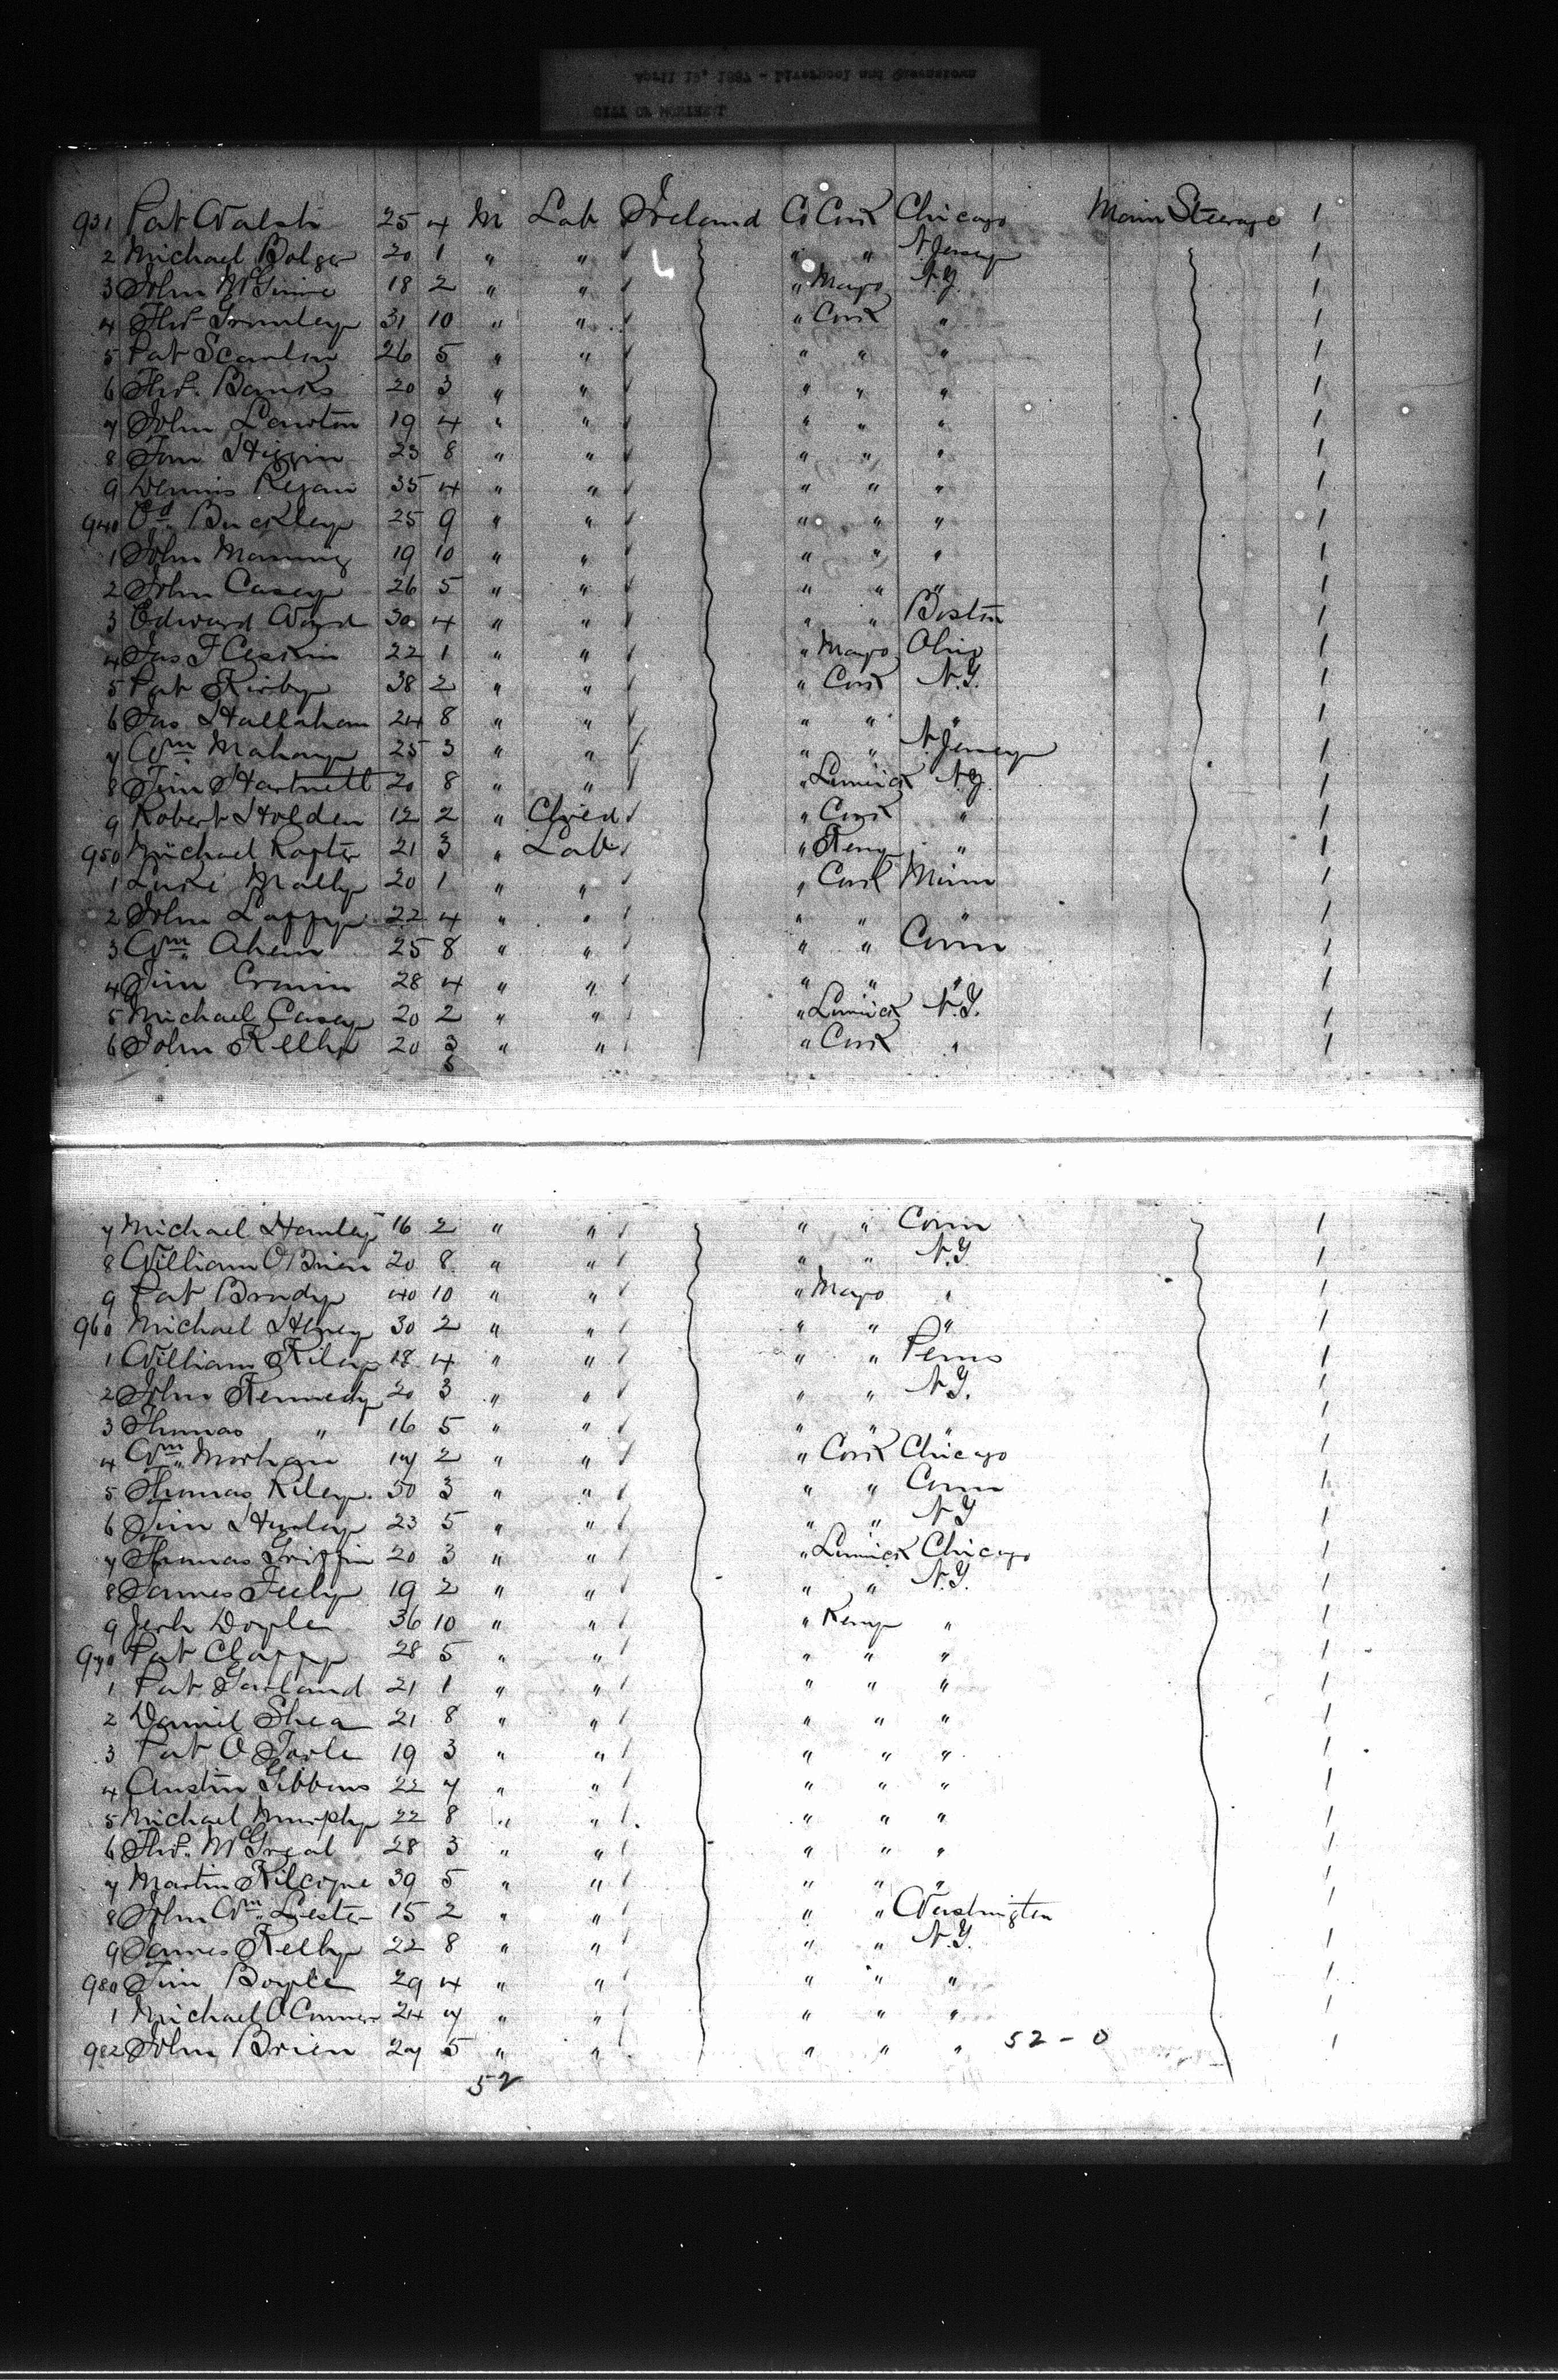 931 Pat Walsh 25 4 M Lab Ireland Co Cork Chicago Main Steerage 1
2 Michael Bolger 20 1 " " " " N. Jersey 1
3 John McGuire 18 2 " " " Mayo N.Y. 1
4 Thos Grimley 31 10 " " " Cork " 1
5 Pat Scanlon 26 5 " " " " " 1
6 Thos. Banks 20 3 " " " " " 1
7 John Lawton 19 4 " " " " " 1
8 Jam Higgin 23 8 " " " " " 1
9 Dennis Regan 35 4 " " " " " 1
940 Ed Buckley 25 9 " " " " " 1
1 John Manning 19 10 " " " " " 1
2 John Casey 26 5 " " " " " 1
3 Edward Ward 30 4 " " " " Boston 1
4 Jas 22 1 " " " Mayo Ohio 1
5 Pat Kirby 38 2 " " " Cork N.Y. 1
6 Jas Hallahan 24 8 " " " " " 1
7 Wm Mahony 25 3 " " " " N. Jersey 1
8 Tim Hartnett 20 8 " " " Limrick N.Y. 1
9 Robert Holden 12 2 " Chied " Cork " 1
950 Michael 21 3 " Lab " Kerry " 1
1 Luke Mally 20 1 " " " Cork Minn 1
2 John Lappy 22 4 " " " " " 1
3 Wm. Ahern 25 8 " " " " Conn 1
4 Tim Cronin 28 4 " " " " " 1
5 Michael Casey 20 2 " " " Limrick N.Y. 1
6 John Kelly 20 3 " " " Cork " 1
5
7 Michael Hanley 16 2 " " " " Conn 1
8 William O'Brien 20 8 " " " " N.Y. 1
9 Pat Brady 40 10 " " " Mayo " 1
960 Michael Heney 30 2 " " " " " 1
1 William Riley 18 4 " " " " Penns 1
2 John Kennedy 20 3 " " " " N.Y. 1
3 Thomas " 16 5 " " " " " 1
4 Wm. 17 2 " " " Cork Chicago 1
5 Thomas Riley 30 3 " " " " Conn 1
6 Tim Hurley 23 5 " " " " N.Y. 1
7 Thomas Griffin 20 3 " " " Limrick Chicago 1
8 James Feely 19 2 " " " " N.Y. 1
9 Jerh Doyle 36 10 " " " Kerry " 1
970 Pat Clappy 28 5 " " " " " 1
1 Pat Garland 21 1 " " " " " 1
2 Daniel Shea 21 8 " " " " " 1
3 Pat O Toole 19 3 " " " " " 1
4 Austin Gibbons 22 7 " " " " " 1
5 Michael Murphy 22 8 " " " " " 1
6 Thos. McGreal 28 3 " " " " " 1
7 Martin Kilcoyne 39 5 " " " " " 1
8 John Wm. Lester 15 2 " " " " Washington 1
9 James Kelly 22 8 " " " " N.Y. 1
980 Tim Boyle 29 4 " " " " " 1
1 Michael O'Connor 24 7 " " " " " 1
982 John Brien 27 5 " " " " " 52 - 0 1
52